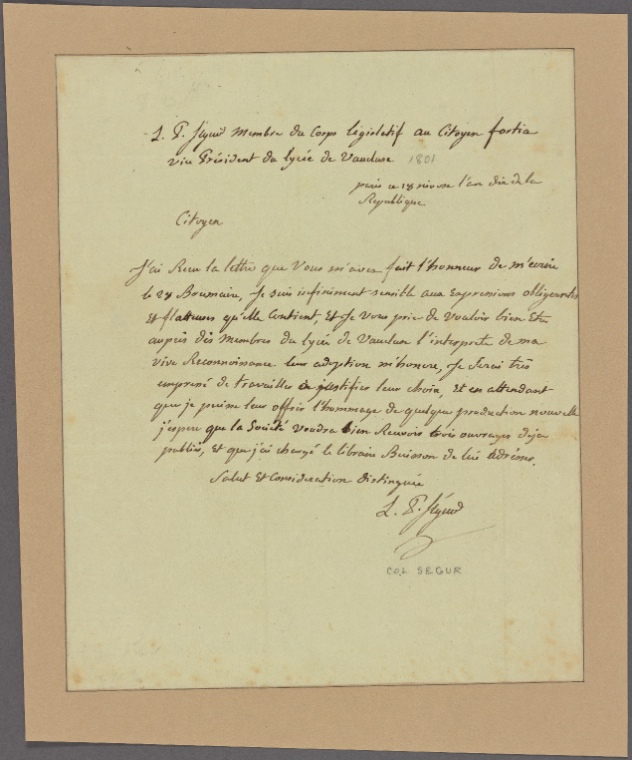 L. P. Ségur Membre du Corps législatif au Citoyen fortia
vice Président du lycée de Vaucluse 1801
paris ce 18 nivose l'an dix de la
République
Citoyen
J'ai Recu la lettre que Vous m'avez fait l'honneur de m'écrire
le 28 Brumaire, Je suis infiniment sensible aux Expressions obligeantes
Et flatteuses qu'elle Contient, Et Je Vous prie de Vouloir bien Etre
auprès des Membres du lycée de Vaucluse l'interprete de ma
vive Reconnoissance leur adoption m'honore, Je Serai très
empressé de travailler a justifier leur choix, Et en attendant
que je puisse leur offrir l'hommage de quelque production nouvelle
j'espere que la Société voudra bien Recevoir trois ouvrages deja
publiés, et que j'ai chargé le libraire Buisson de lui adresser.
Salut Et Consideration distinguée
L. P. Ségur
COL SEGUR